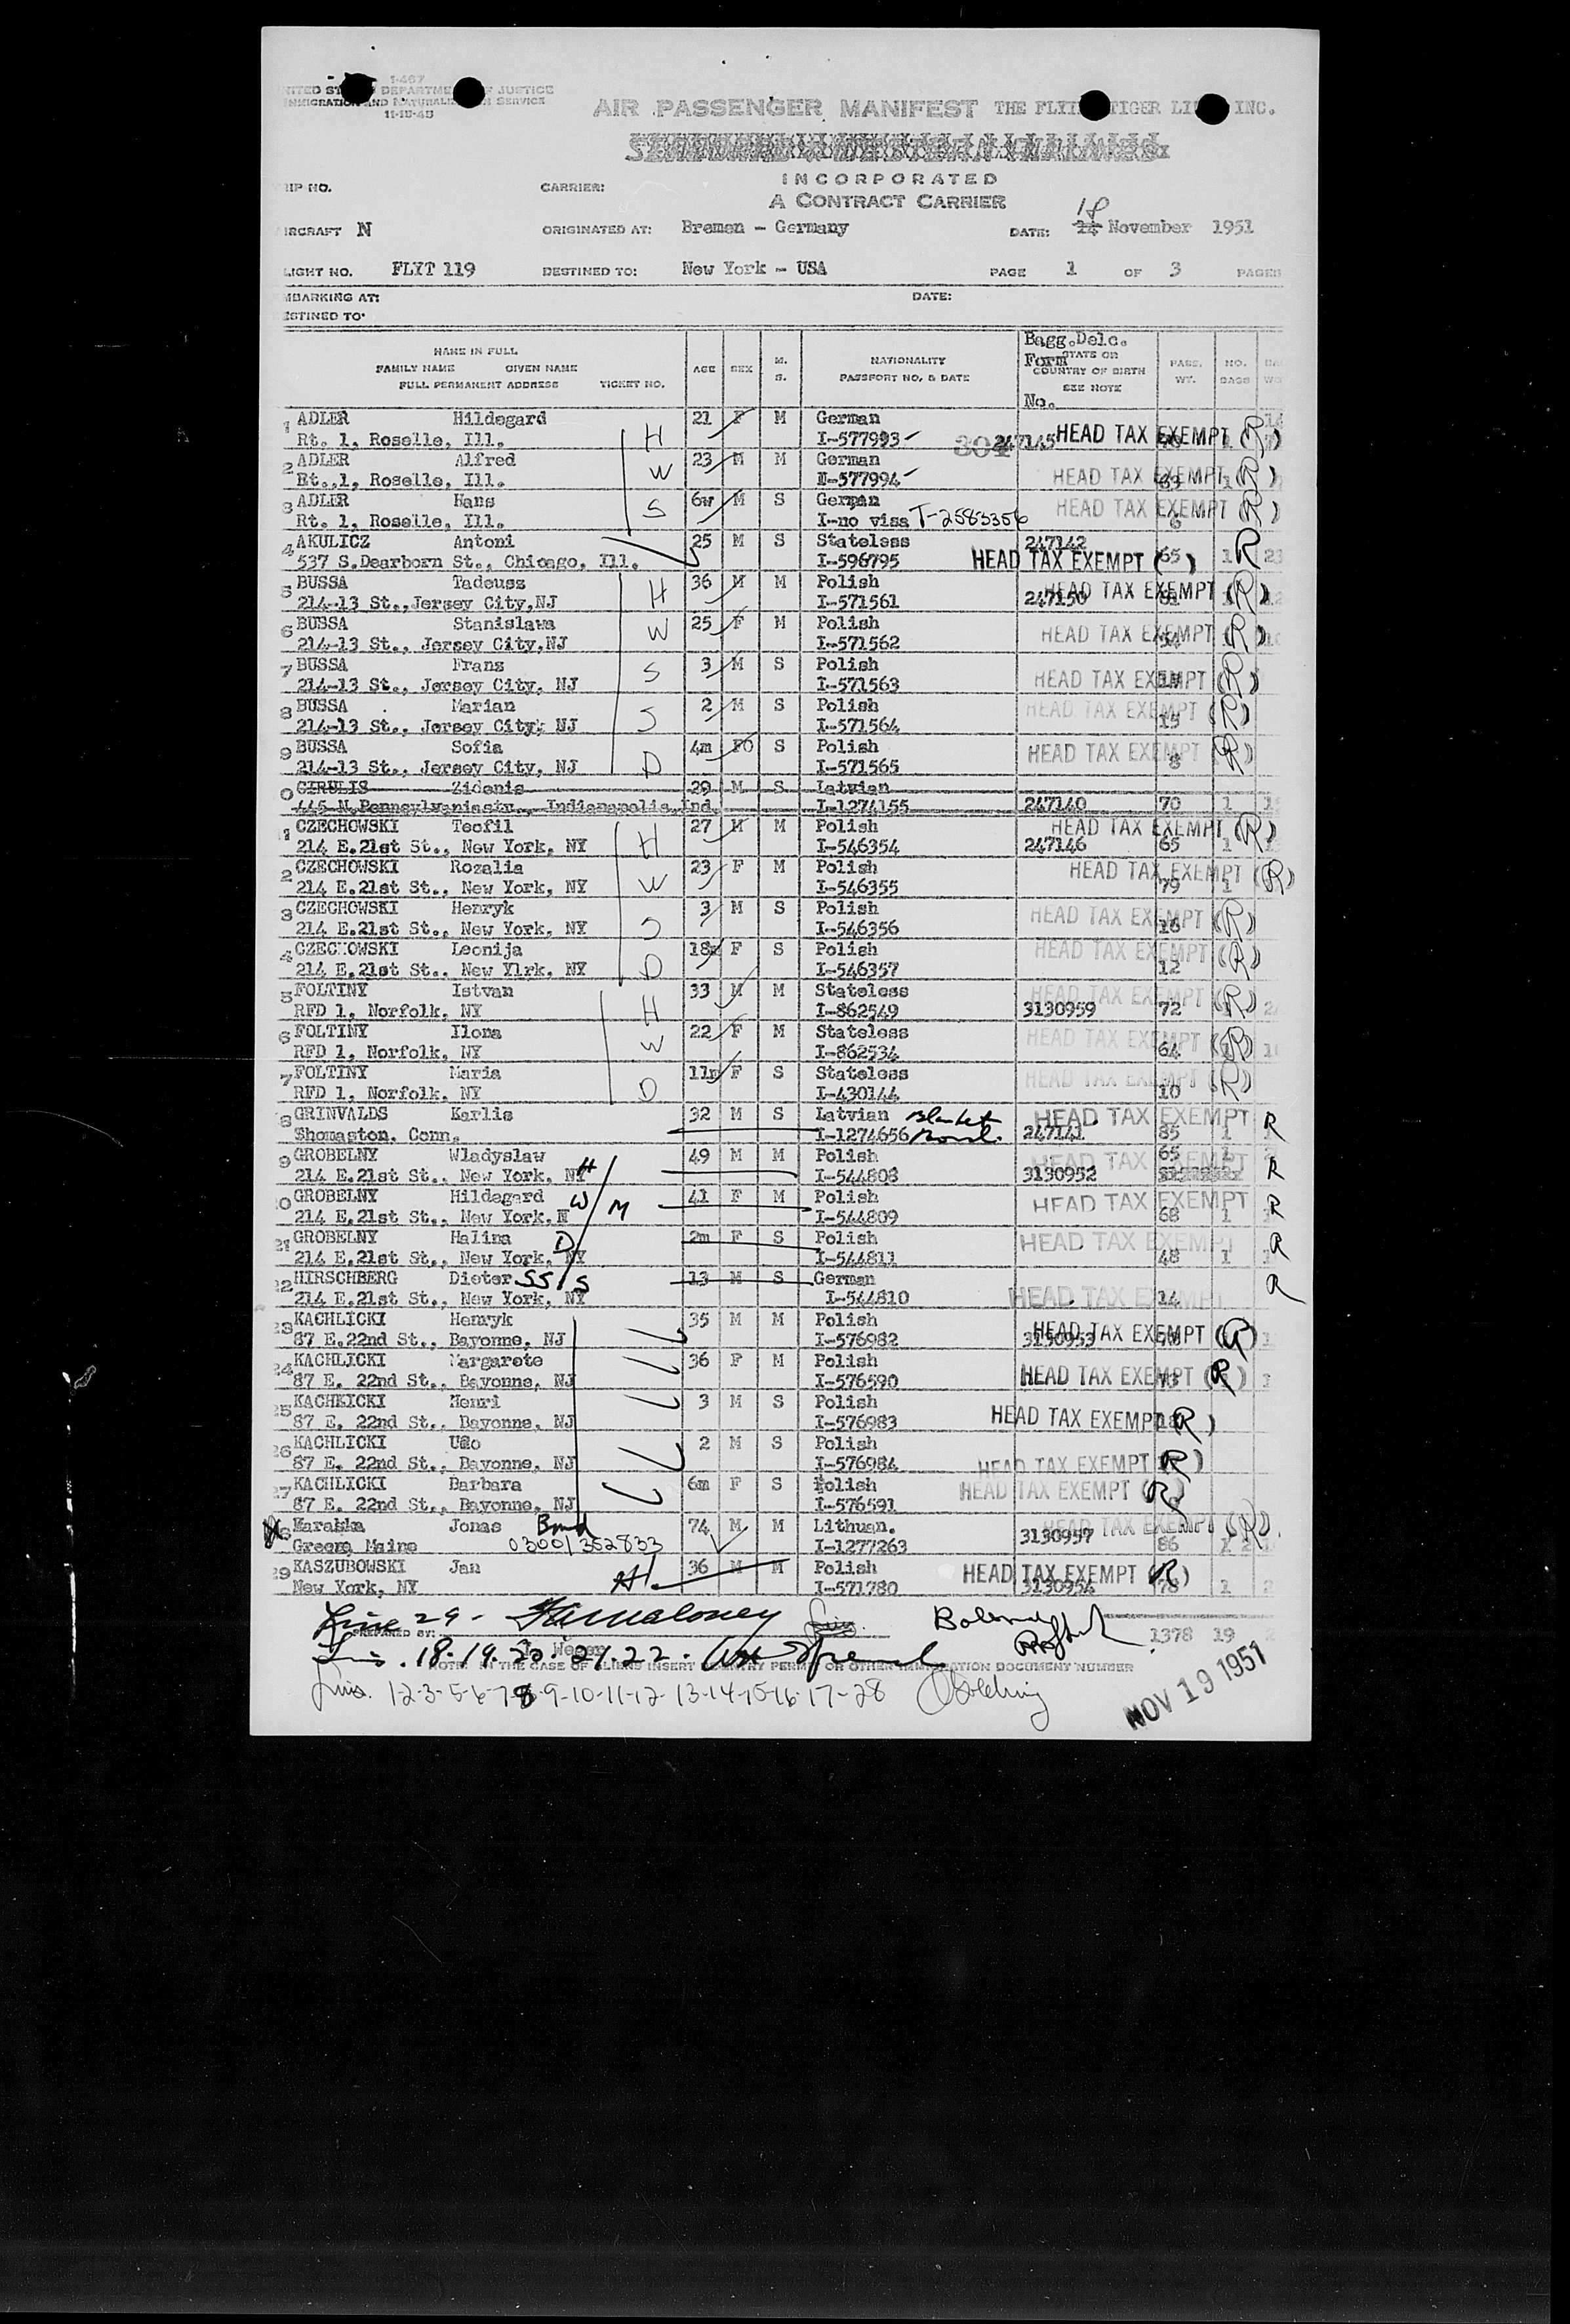 1-467
NITED ST DEPARTME F JUSTICE
IMMIGRATION AND NATURALIZ N SERVICE
11-15-45
AIR PASSENGER MANIFEST THE FLYI TIGER LI INC.
INCORPORATED
A CONTRACT CARRIER
IIP NO. CARRIER:
18
IRCRAFT N ORIGINATED AT: Bremen - Germany DATE: November 1951
LIGHT NO. FLYT 119 DESTINED TO: New York - USA PAGE 1 OF 3 PAGES
MBARKING AT: DATE:
ESTINED TO:
NAME IN FULL
FAMILY NAME GIVEN NAME
FULL PERMANENT ADDRESS TICKET NO. AGE SEX M. S. NATIONALITY PASSPORT NO. & DATE Bagg.Delc. Form No. STATE OR COUNTRY OF BIRTH SEE NOTE PASS. WT. NO. BAGS
1 ADLER Hildegard 21 F M German
Rt. 1, Roselle, Ill. H I-577993 304 247145 HEAD TAX EXEMPT (R)
2 ADLER Alfred 23 M M German
Rt. 1, Roselle, Ill. W I-577994 HEAD TAX EXEMPT (R)
3 ADLER Hans 6w M S German
Rt. 1, Roselle, Ill. S I-no visa T-2583356 HEAD TAX EXEMPT (R) 6
4 AKULICZ Antoni 25 M S Stateless 247142
537 S.Dearborn St., Chicago, Ill. I-596795 HEAD TAX EXEMPT ( ) 65 1 R 23
5 BUSSA Tadeusz 36 M M Polish
214-13 St.,Jersey City,NJ H I-571561 247150 HEAD TAX EXEMPT (R)
6 BUSSA Stanislawa 25 F M Polish
214-13 St., Jersey City,NJ W I-571562 HEAD TAX EXEMPT (R)
7 BUSSA Franz 3 M S Polish
214-13 St., Jersey City, NJ S I-571563 HEAD TAX EXEMPT (R)
8 BUSSA Marian 2 M S Polish
214-13 St., Jersey City, NJ S I-571564 HEAD TAX EXEMPT (R) 15
9 BUSSA Sofia 4m FO S Polish
214-13 St., Jersey City, NJ D I-571565 HEAD TAX EXEMPT (R) 8
0 CIRULIS Zidonis 29 M S Latvian
445 N.Pennsylvaniastr., Indianapolis,Ind. I-1274155 247140 70 1
1 CZECHOWSKI Teofil 27 M M Polish HEAD TAX EXEMPT (R)
214 E.21st St., New York, NY H I-546354 247146 65 1
2 CZECHOWSKI Rozalia 23 F M Polish HEAD TAX EXEMPT (R)
214 E.21st St., New York, NY W I-546355 79 1
3 CZECHOWSKI Henryk 3 M S Polish
214 E.21st St., New York, NY S I-546356 HEAD TAX EXEMPT (R) 16
4 CZECHOWSKI Leonija 18m F S Polish HEAD TAX EXEMPT (R)
214 E.21st St., New Ylrk, NY D I-546357 12
5 FOLTINY Istvan 33 M M Stateless HEAD TAX EXEMPT (R)
RFD 1, Norfolk, NY H I-862549 3130959 72
6 FOLTINY Ilona 22 F M Stateless
RFD 1, Norfolk, NY W I-862534 HEAD TAX EXEMPT (R) 64
7 FOLTINY Maria 11m F S Stateless
RFD 1, Norfolk, NY D I-430144 HEAD TAX EXEMPT (R) 10
8 GRINVALDS Karlis 32 M S Latvian Blanket HEAD TAX EXEMPT R
Thomaston, Conn. I-1274656 Bond. 247141 85 1
9 GROBELNY Wladyslaw 49 M M Polish 65 1
214 E.21st St., New York, NY H I-544808 3130952 HEAD TAX EXEMPT R
0 GROBELNY Hildegard 41 F M Polish
214 E.21st St., New York,N W M I-544809 HEAD TAX EXEMPT 68 1 R
21 GROBELNY Halina 2m F S Polish
214 E.21st St., New York, NY D I-544811 HEAD TAX EXEMPT 48 1 R
22 HIRSCHBERG Dieter SS/S 13 M S German
214 E.21st St., New York, NY I-544810 HEAD TAX EXEMPT 14 R
23 KACHLICKI Henryk 35 M M Polish
87 E.22nd St., Bayonne, NJ I-576982 3130953 HEAD TAX EXEMPT (R)
24 KACHLICKI Margarete 36 F M Polish
87 E. 22nd St., Bayonne, NJ I-576590 HEAD TAX EXEMPT (R)
25 KACHLICKI Henri 3 M S Polish
87 E. 22nd St., Bayonne, NJ I-576983 HEAD TAX EXEMPT (R)
26 KACHLICKI Udo 2 M S Polish
87 E. 22nd St., Bayonne, NJ I-576984 HEAD TAX EXEMPT (R)
27 KACHLICKI Barbara 6m F S Polish
87 E. 22nd St., Bayonne, NJ I-576591 HEAD TAX EXEMPT (R)
Jonas Bond 74 M M Lithuan. HEAD TAX EXEMPT (R)
Greene Maine 0300/352833 I-1277263 3130957 86
29 KASZUBOWSKI Jan 36 M M Polish HEAD TAX EXEMPT (R)
New York, NY I-571780 3130954 78 1 2
Line 29 - Maloney
PREPARED BY: 1378 19
18-19-20-21-22
NOTE: IN THE CASE OF ALIENS INSERT ENTRY PERMIT OR OTHER IMMIGRATION DOCUMENT NUMBER
Lines. 1-2-3-5-6-7-8-9-10-11-12-13-14-15-16-17-28
NOV 19 1951